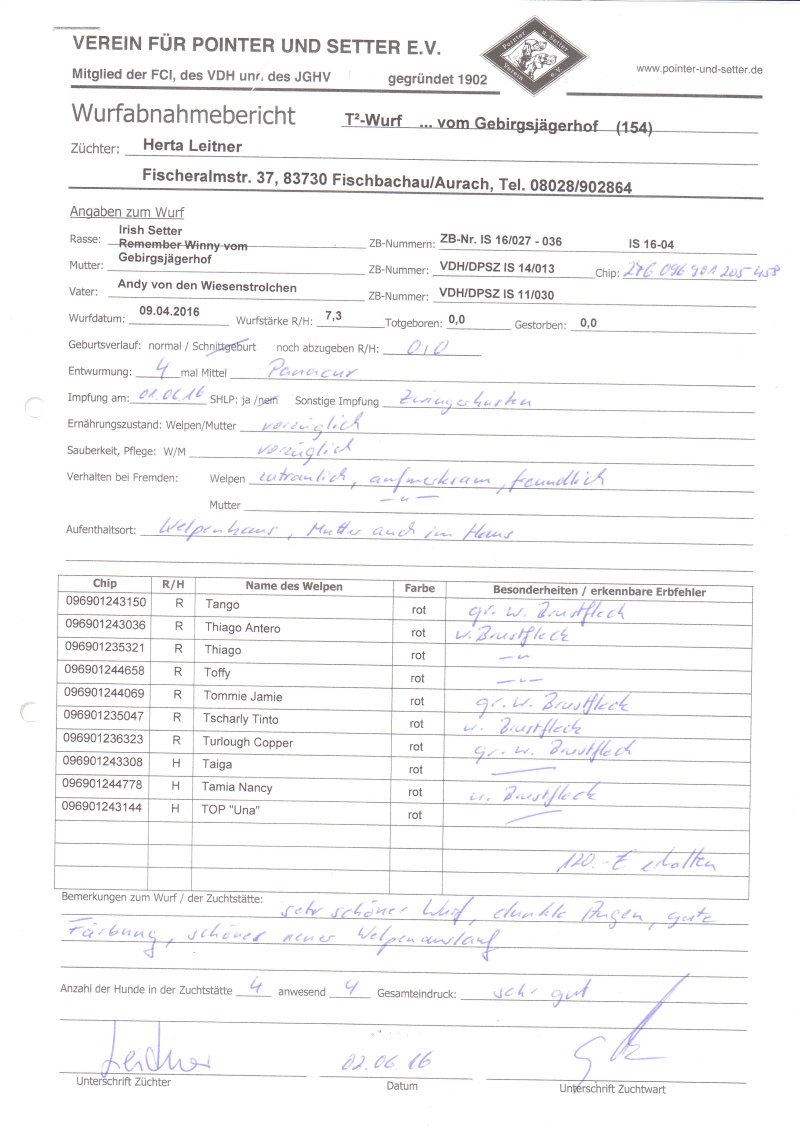 VEREIN FÜR POINTER UND SETTER E.V.
Pointer u. Setter
Verein e.V.
Mitglied der FCI, des VDH und des JGHV gegründet 1902
www.pointer-und-setter.de
Wurfabnahmebericht T²-Wurf ... vom Gebirgsjägerhof (154)
Züchter: Herta Leitner
Fischeralmstr. 37, 83730 Fischbachau/Aurach, Tel. 08028/902864
Angaben zum Wurf
Rasse: Irish Setter ZB-Nummern: ZB-Nr. IS 16/027 - 036 IS 16-04
Remember Winny vom
Mutter: Gebirgsjägerhof ZB-Nummer: VDH/DPSZ IS 14/013 Chip: 276 096 901 205 458
Vater: Andy von den Wiesenstrolchen ZB-Nummer: VDH/DPSZ IS 11/030
Wurfdatum: 09.04.2016 Wurfstärke R/H: 7,3 Totgeboren: 0,0 Gestorben: 0,0
Geburtsverlauf: normal / Schnittgeburt noch abzugeben R/H: 0,0
Entwurmung: 4 mal Mittel Panacur
Impfung am: 01.06.16 SHLP: ja /nein Sonstige Impfung Zwingerhusten
Ernährungszustand: Welpen/Mutter vorzüglich
Sauberkeit, Pflege: W/M vorzüglich
Verhalten bei Fremden: Welpen zutraulich, aufmerksam, freundlich
Mutter — " —
Aufenthaltsort: Welpenhaus, Mutter auch im Haus
Chip R/H Name des Welpen Farbe Besonderheiten / erkennbare Erbfehler
096901243150 R Tango rot gr. w. Brustfleck
096901243036 R Thiago Antero rot w. Brustfleck
096901235321 R Thiago rot — " —
096901244658 R Toffy rot — " —
096901244069 R Tommie Jamie rot gr. w. Brustfleck
096901235047 R Tscharly Tinto rot w. Brustfleck
096901236323 R Turlough Copper rot gr. w. Brustfleck
096901243308 H Taiga rot —
096901244778 H Tamia Nancy rot w. Brustfleck
096901243144 H TOP "Una" rot —
120.- € erhalten
Bemerkungen zum Wurf / der Zuchtstätte: sehr schöner Wurf, dunkle Augen, gute
Färbung, schöner neuer Welpenauslauf
Anzahl der Hunde in der Zuchtstätte 4 anwesend 4 Gesamteindruck: sehr gut
Leitner 02.06.16
Unterschrift Züchter Datum Unterschrift Zuchtwart